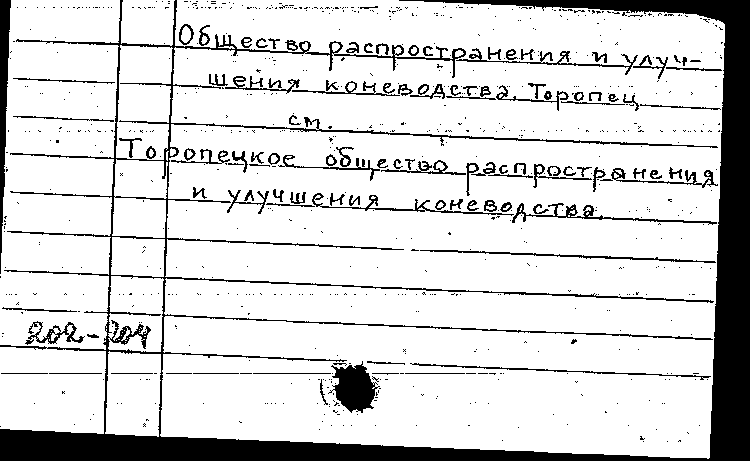 Общество распространения и улуч-
шения коневодства. Торопец
см.
Торопецкое общество распространения
и улучшения коневодства.
202-204